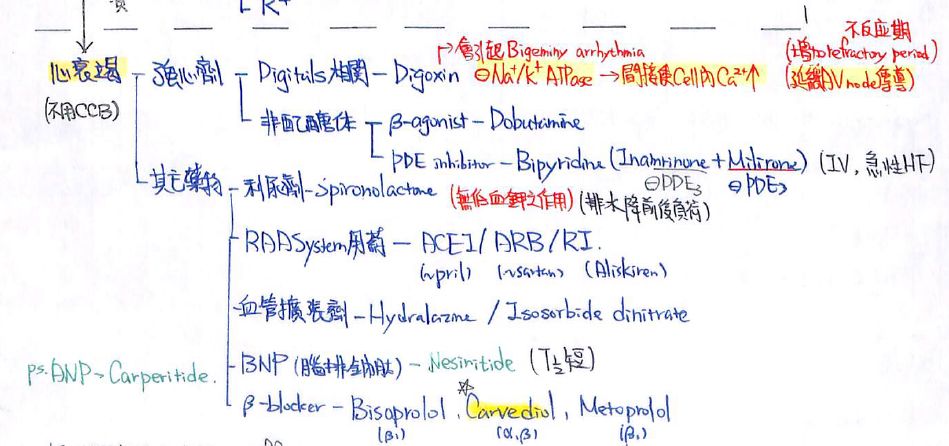 心衰竭 強心劑 Digitals相關 - Digoxin 會引起Bigeminy arrhythmia 不反应期
⊖Na⁺/K⁺ ATPase → 間接使Cell内Ca²⁺↑ (增加refractory period)
(延緩AV node傳導)
(不用CCB)
非配醣体 β-agonist - Dobutamine
PDE inhibitor - Bipyridine (Inamrinone + Milrinone) (IV, 急性HF)
⊖PDE₃ ⊖PDE₃
其它藥物 利尿劑 - Spironolactone (無低血鉀之作用) (排水降前後負荷)
RAASystem用葯 - ACEI / ARB / RI.
(~pril) (~sartan) (Aliskiren)
血管擴張劑 - Hydralazine / Isosorbide dinitrate
ps. ANP → Carperitide.
BNP (腦排鈉肽) - Nesiritide (T½短)
β-blocker - Bisoprolol, Carvediol, Metoprolol
(β₁) (α,β) (β₁)